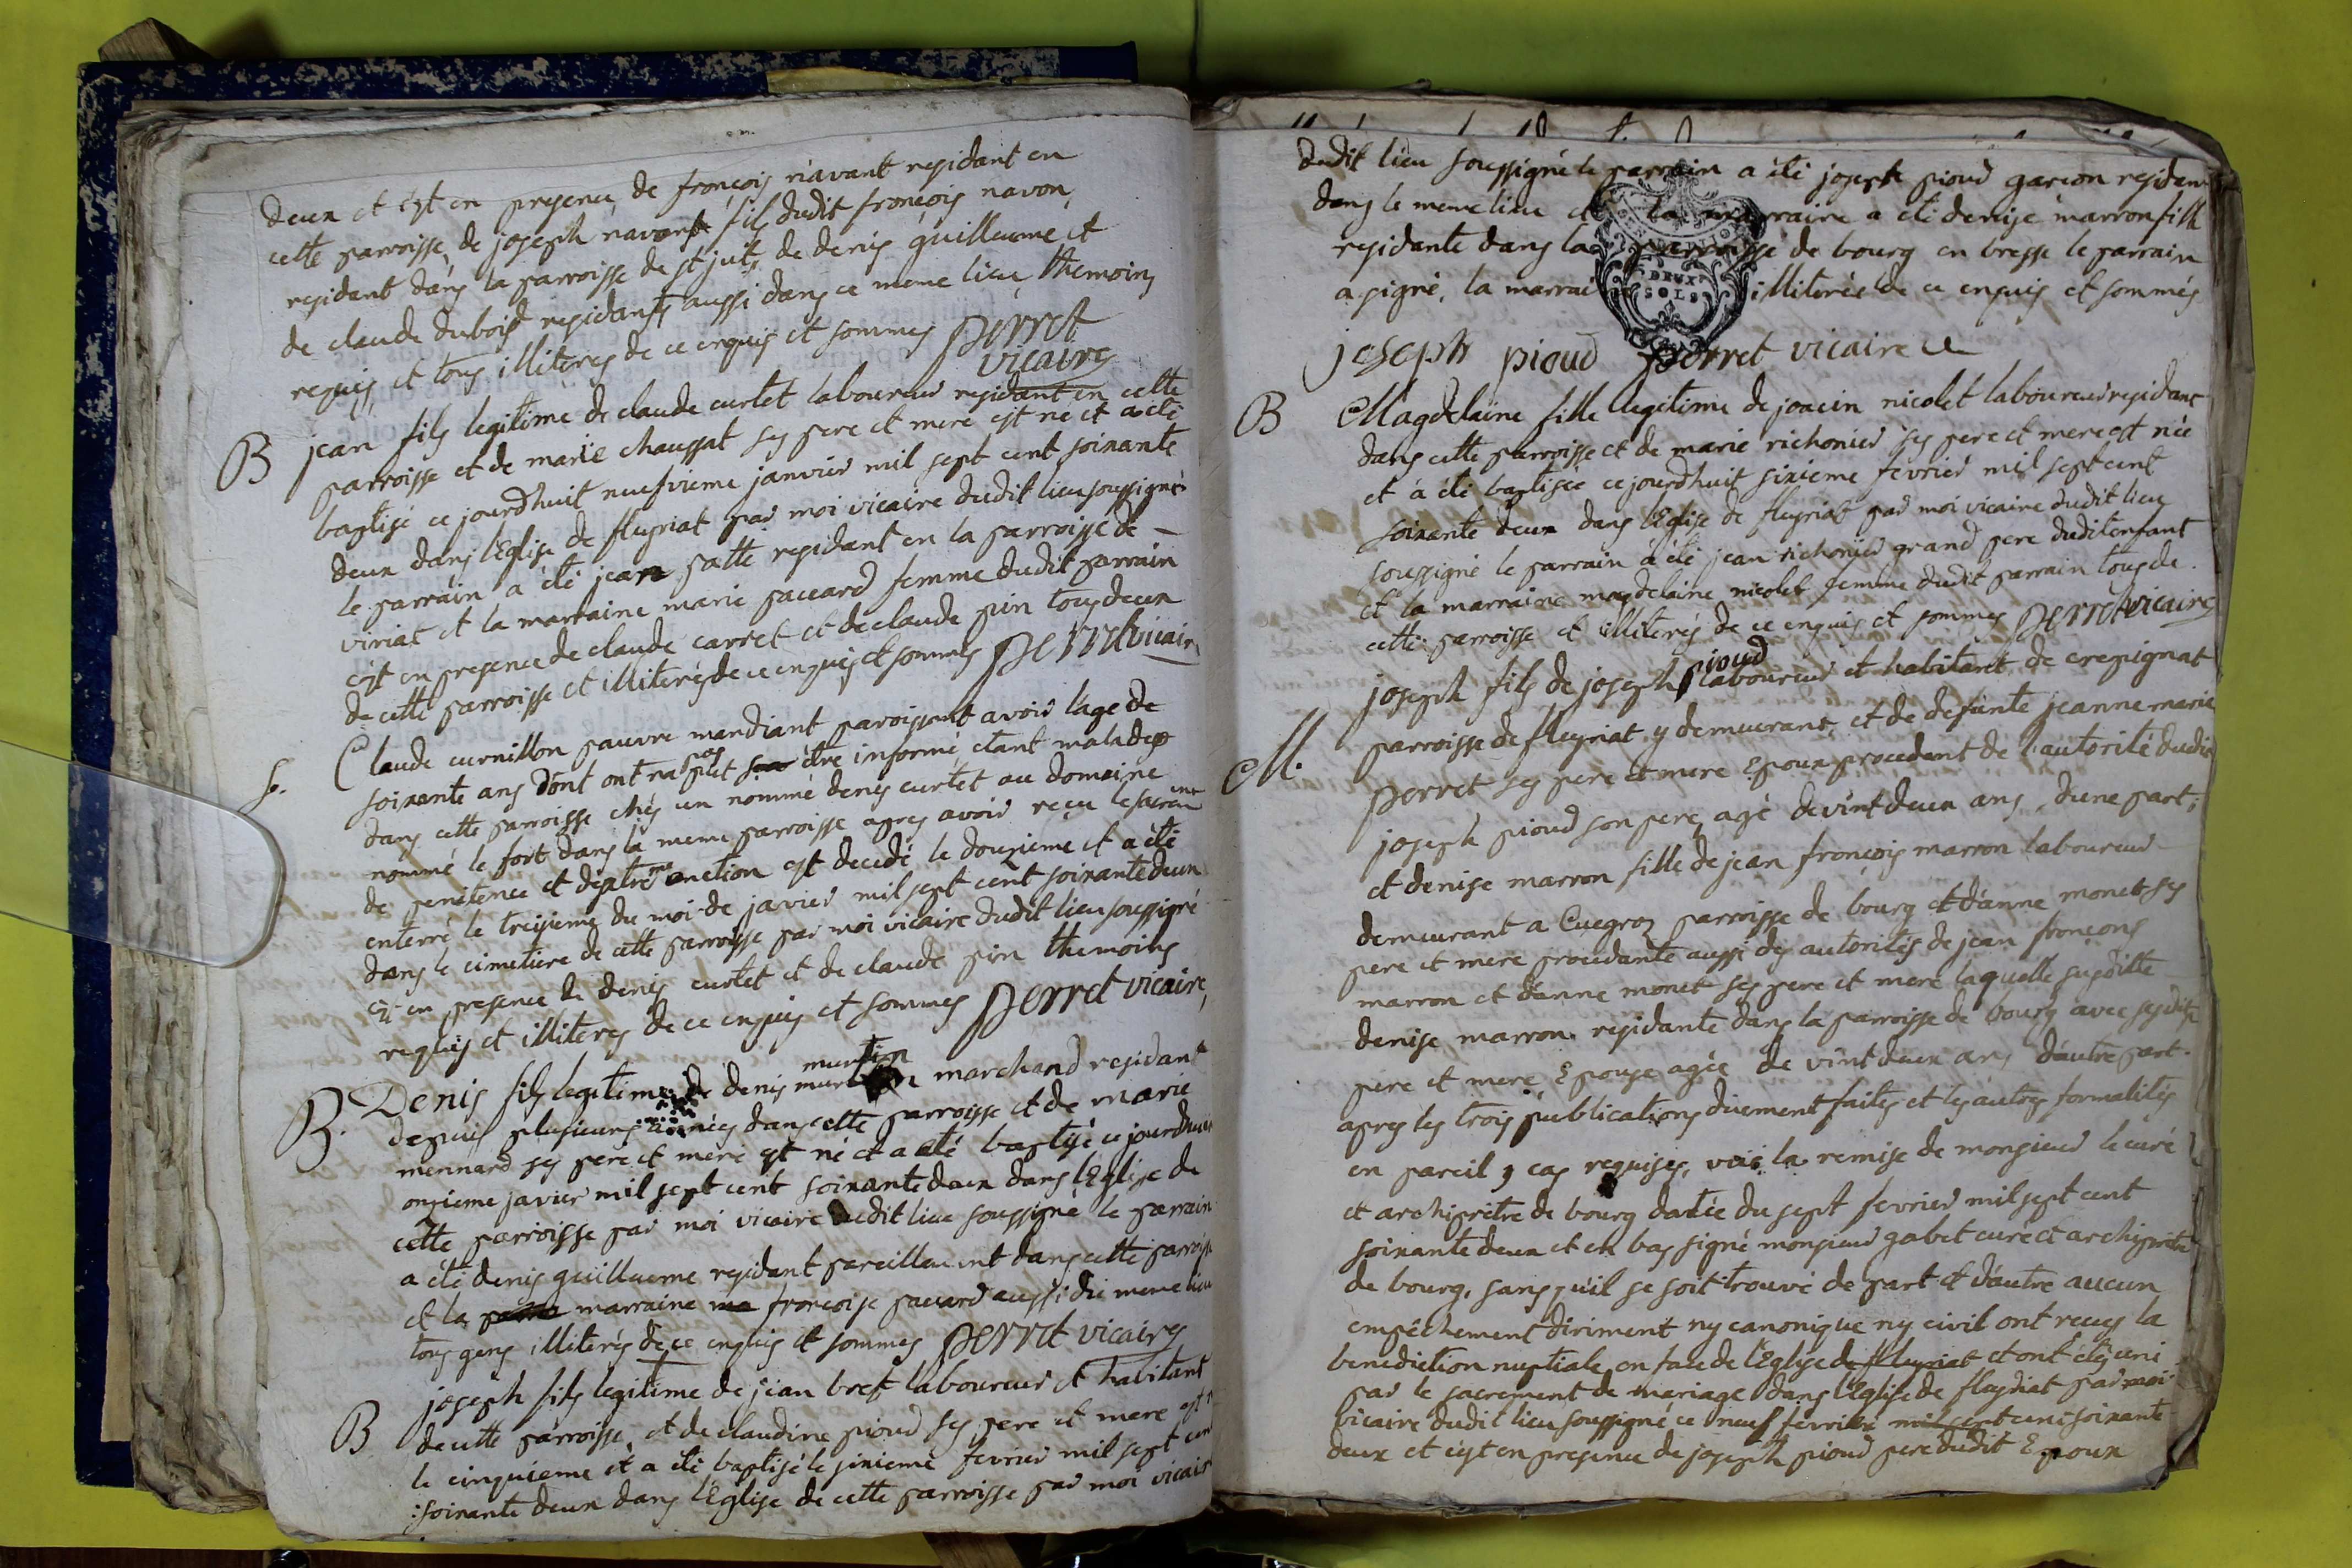 deux et c'est en presence de françois navant residant en
cette parroisse de joseph navant fils dudit françois navon
residant dans la parroisse de st jut, de denis guillaume et
de claude dubois residants aussi dans ce meme lieu themoins
requis et tous illiteres de ce enquis et sommes perret
vicaire
B jean fils legitime de claude curtet laboureur residant en cette
parroisse et de marie chaussat ses pere et mere est né et a eté
baptisé ce jourdhuit neufvieme janvier mil sept cent soixante
deux dans l'Eglise de fleyriat par moi vicaire dudit lieu soussigné
le parrain a été jean patte residant en la parroisse de
viriat et la marraine marie paccard femme dudit parrain
c'est en presence de claude carret et de claude pin tous deux
de cette parroisse et illiterés de ce enquis et sommes perret vicaire
S. Claude curnillon pauvre mandiant paroissant avoir l'age de
soixante ans dont ont na peut être informé etant malade
dans cette parroisse chés un nommé denis curtet au domaine
nommé le fort dans la meme parroisse apres avoir reçu le sacrem.nt
de penitence et d'extreme onction est decedé le douzieme et a été
enterré le treizieme du moi de javier mil sept cent soixante deux
dans le cimetiere de cette parroisse par moi vicaire dudit lieu soussigné
c'est en presence de denis curtet et de claude pin themoins
requis et illiteres de ce enquis et sommes perret vicaire
murtin
B. Denis fils legitime de denis marchand residant
depuis plusieurs années dans cette parroisse et de marie
mennard ses pere et mere est né et a eté baptisé ce jourdhuit
onzieme javier mil sept cent soixante deux dans l'Eglise de
cette parroisse par moi vicaire dudit lieu soussigné le parrain
a été denis guillaume residant pareillement dans cette parroisse
et la marraine francoise pacard aussi du meme lieu
tous gens illiterés de ce enquis et sommes perret vicaire
B joseph fils legitime de jean bret laboureur et habitant
de cette parroisse et de claudine pioud ses pere et mere est né
le cinquieme et a eté baptisé le sixieme fevrier mil sept cent
soixante deux dans l'Eglise de cette parroisse par moi vicaire
dudit lieu soussigné le parrain a été joseph pioud garcon residant
dans le meme lieu et la marraine a eté denise marron fille
residante dans la parroisse de bourg en bresse le parrain
a signé, la marraine illiterée de ce enquis et sommés
DEUX
SOLS
joseph pioud perret vicaire
B Magdelaine fille legitime de joacin nicolet laboureur residant
dans cette parroisse et de marie richonier ses pere et mere est née
et a été baptisée ce jourdhuit sixieme fevrier mil sept cent
soixante deux dans l'Eglise de fleyriat par moi vicaire dudit lieu
soussigné le parrain a été jean richonier grand pere dudit enfant
et la marraine magdelaine nicolet femme dudit parrain tous de
cette parroisse et illiterés de ce enquis et sommes perret vicaire
pioud
joseph fils de joseph laboureur et habitant de crepignat
M. parroisse de fleyriat y demeurant, et de defunte jeanne marie
perret ses pere et mere Epoux procedant de l'autorité dudit
joseph pioud son pere, agé de vint deux ans, d'une part;
et denise marron fille de jean françois marron laboureur
demeurant a Cuegroz parroisse de bourg et d'anne monet ses
pere et mere procedante aussi des autorités de jean françons
marron et d'anne monet ses pere et mere laquelle susditte
denise marron residante dans la parroisse de bourg avec sesdits
pere et mere Epouse agée de vint deux ans d'autre part.
apres les trois publications duement faites et les autres formalités
en pareil cas requises, veüe la remise de monsieur le curé
et archiprêtre de bourg datée du sept fevrier mil sept cent
soixante deux et en bas signé monsieur gabet curé et archiprêtre
de bourg, sans qu'il se soit trouvé de part et d'autre aucun
empêchement diriment ny canonique ny civil ont reçus la
benediction nuptiale en face de l'Eglise de fleyriat et ont étés uni
par le sacrement de mariage dans l'Eglise de fleyriat par moi
vicaire dudit lieu soussigné ce neuf fevrier mil sept cent soixante
deux et c'est en presence de joseph pioud pere dudit Epoux